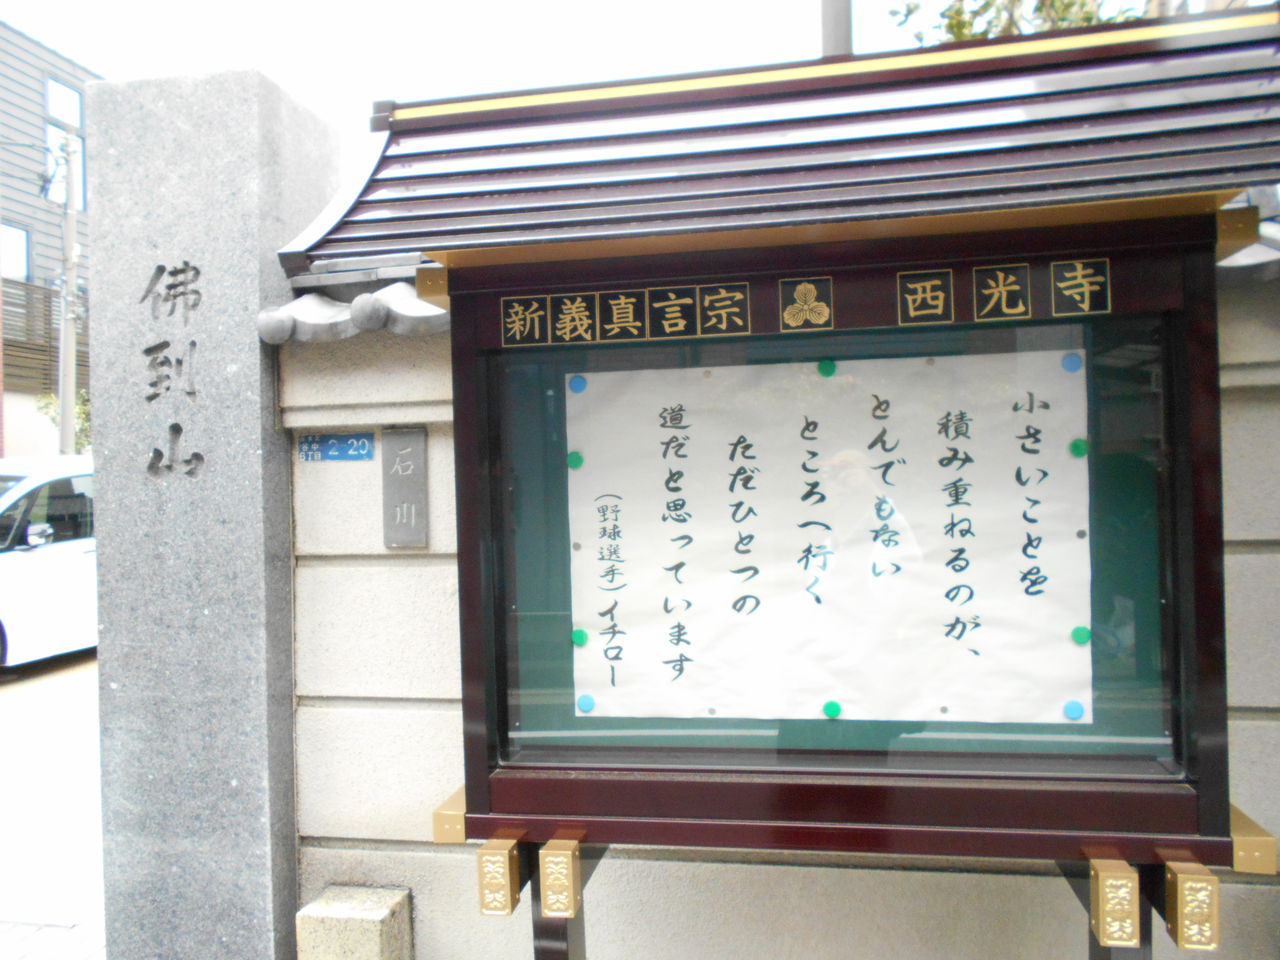 佛到山
新義真言宗 西光寺
小さいことを
積み重ねるのが、
とんでもない
ところへ行く
ただひとつの
道だと思っています
(野球選手)イチロー
谷中
6丁目
2-20
石川